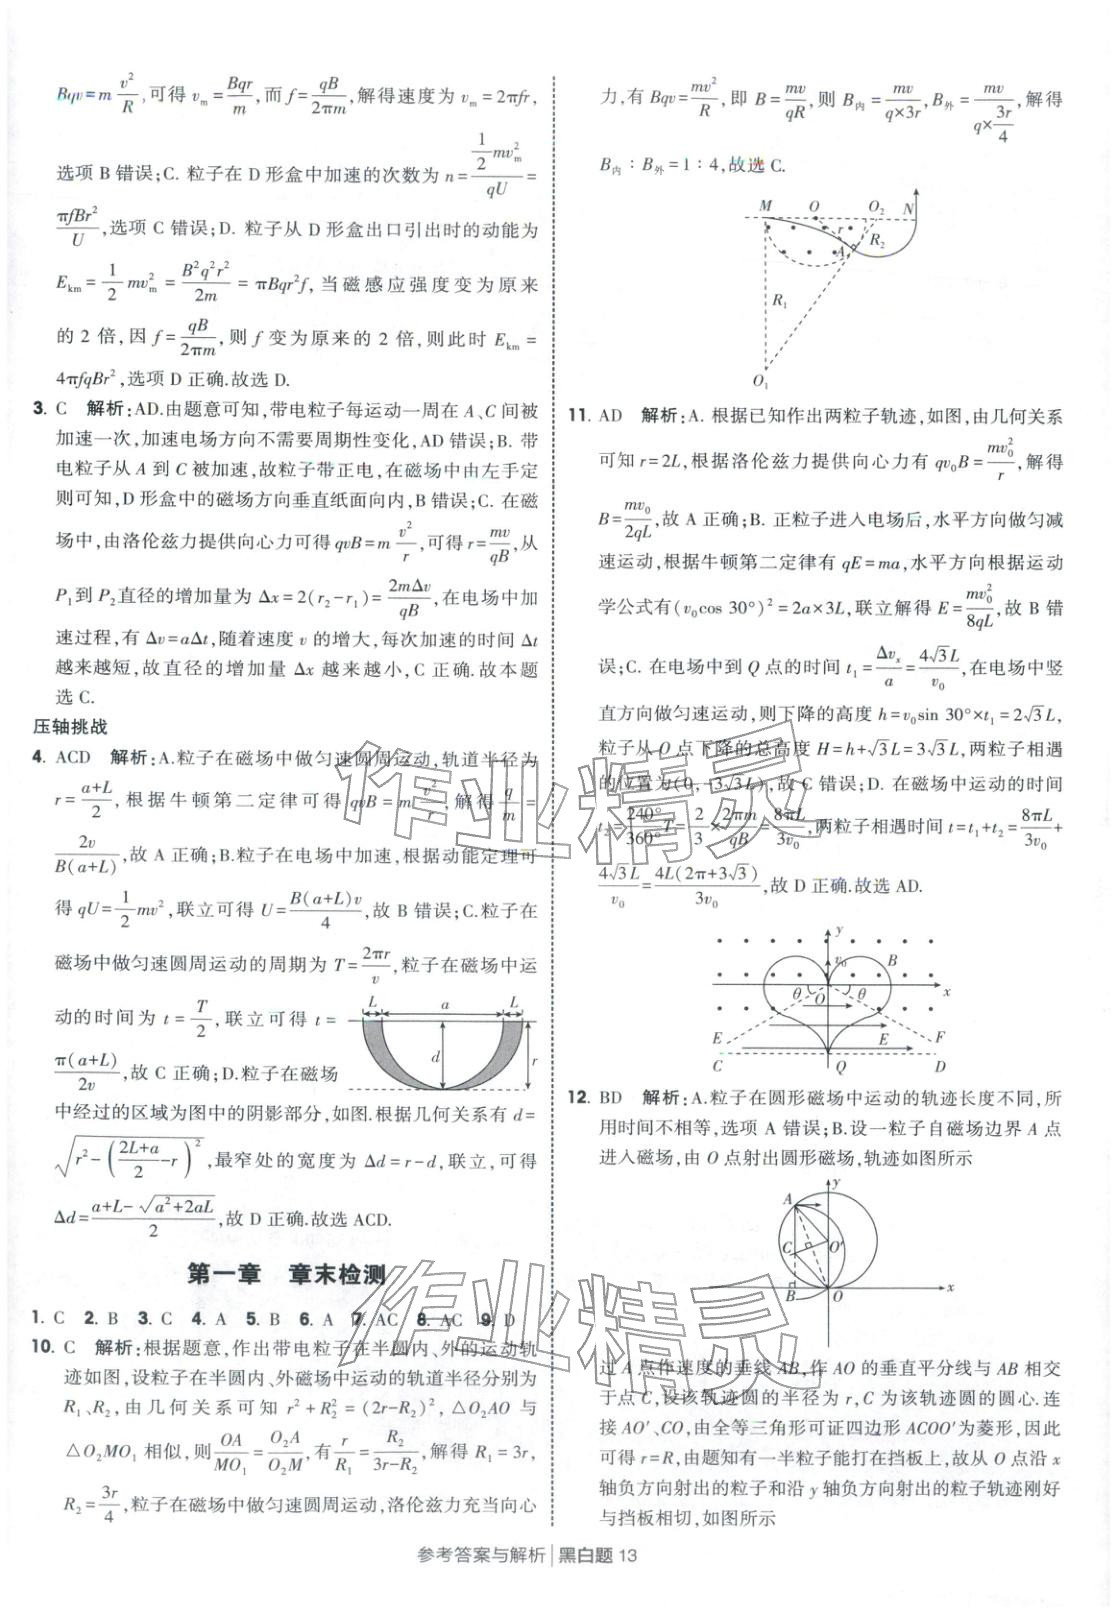 Bqv=m v²/R,可得 v_m=Bqr/m,而 f=qB/2πm,解得速度为 v_m=2πfr,
选项 B 错误;C. 粒子在 D 形盒中加速的次数为 n=(1/2 mv_m²)/qU=
πfBr²/U,选项 C 错误;D. 粒子从 D 形盒出口引出时的动能为
E_km=1/2 mv_m²=B²q²r²/2m=πBqr²f,当磁感应强度变为原来
的 2 倍,因 f=qB/2πm,则 f 变为原来的 2 倍,则此时 E_km=
4πfqBr²,选项 D 正确.故选 D.
3. C 解析:AD.由题意可知,带电粒子每运动一周在 A、C 间被
加速一次,加速电场方向不需要周期性变化,AD 错误;B. 带
电粒子从 A 到 C 被加速,故粒子带正电,在磁场中由左手定
则可知,D 形盒中的磁场方向垂直纸面向内,B 错误;C. 在磁
场中,由洛伦兹力提供向心力可得 qvB=m v²/r,可得 r=mv/qB,从
P₁到 P₂直径的增加量为 Δx=2(r₂-r₁)=2mΔv/qB,在电场中加
速过程,有 Δv=aΔt,随着速度 v 的增大,每次加速的时间 Δt
越来越短,故直径的增加量 Δx 越来越小,C 正确.故本题
选 C.
压轴挑战
4. ACD 解析:A.粒子在磁场中做匀速圆周运动,轨道半径为
r=(a+L)/2,根据牛顿第二定律可得 qvB=m v²/r,解得 q/m=
2v/B(a+L),故 A 正确;B.粒子在电场中加速,根据动能定理可
得 qU=1/2 mv²,联立可得 U=B(a+L)v/4,故 B 错误;C.粒子在
磁场中做匀速圆周运动的周期为 T=2πr/v,粒子在磁场中运
动的时间为 t=T/2,联立可得 t=
π(a+L)/2v,故 C 正确;D.粒子在磁场
L a L
d r
中经过的区域为图中的阴影部分,如图.根据几何关系有 d=
√(r²-((2L+a)/2-r)²),最窄处的宽度为 Δd=r-d,联立,可得
Δd=(a+L-√(a²+2aL))/2,故 D 正确.故选 ACD.
第一章 章末检测
1. C 2. B 3. C 4. A 5. B 6. A 7. AC 8. AC 9. D
10. C 解析:根据题意,作出带电粒子在半圆内、外的运动轨
迹如图,设粒子在半圆内、外磁场中运动的轨道半径分别为
R₁、R₂,由几何关系可知 r²+R₂²=(2r-R₂)²,△O₂AO 与
△O₂MO₁ 相似,则 OA/MO₁=O₂A/O₂M,有 r/R₁=R₂/(3r-R₂),解得 R₁=3r,
R₂=3r/4,粒子在磁场中做匀速圆周运动,洛伦兹力充当向心
力,有 Bqv=mv²/R,即 B=mv/qR,则 B内=mv/(q×3r),B外=mv/(q×3r/4),解得
B内∶B外=1∶4,故选 C.
M O O₂ N
r A R₂
R₁
O₁
11. AD 解析:A. 根据已知作出两粒子轨迹,如图,由几何关系
可知 r=2L,根据洛伦兹力提供向心力有 qv₀B=mv₀²/r,解得
B=mv₀/2qL,故 A 正确;B. 正粒子进入电场后,水平方向做匀减
速运动,根据牛顿第二定律有 qE=ma,水平方向根据运动
学公式有(v₀cos 30°)²=2a×3L,联立解得 E=mv₀²/8qL,故 B 错
误;C. 在电场中到 Q 点的时间 t₁=Δvₓ/a=4√3L/v₀,在电场中竖
直方向做匀速运动,则下降的高度 h=v₀sin 30°×t₁=2√3L,
粒子从 O 点下降的总高度 H=h+√3L=3√3L,两粒子相遇
的位置为(0,-3√3L),故 C 错误;D. 在磁场中运动的时间
t₂=240°/360°T=2/3×2πm/qB=8πL/3v₀,两粒子相遇时间 t=t₁+t₂=8πL/3v₀+
4√3L/v₀=4L(2π+3√3)/3v₀,故 D 正确.故选 AD.
y
v₀ B
θ O θ x
E E F
C Q D
12. BD 解析:A.粒子在圆形磁场中运动的轨迹长度不同,所
用时间不相等,选项 A 错误;B.设一粒子自磁场边界 A 点
进入磁场,由 O 点射出圆形磁场,轨迹如图所示
y
A
C O′
B O x
过 A 点作速度的垂线 AB,作 AO 的垂直平分线与 AB 相交
于点 C,设该轨迹圆的半径为 r,C 为该轨迹圆的圆心.连
接 AO′、CO,由全等三角形可证四边形 ACOO′为菱形,因此
可得 r=R,由题知有一半粒子能打在挡板上,故从 O 点沿 x
轴负方向射出的粒子和沿 y 轴负方向射出的粒子轨迹刚好
与挡板相切,如图所示
参考答案与解析 黑白题 13
作业精灵
作业精灵